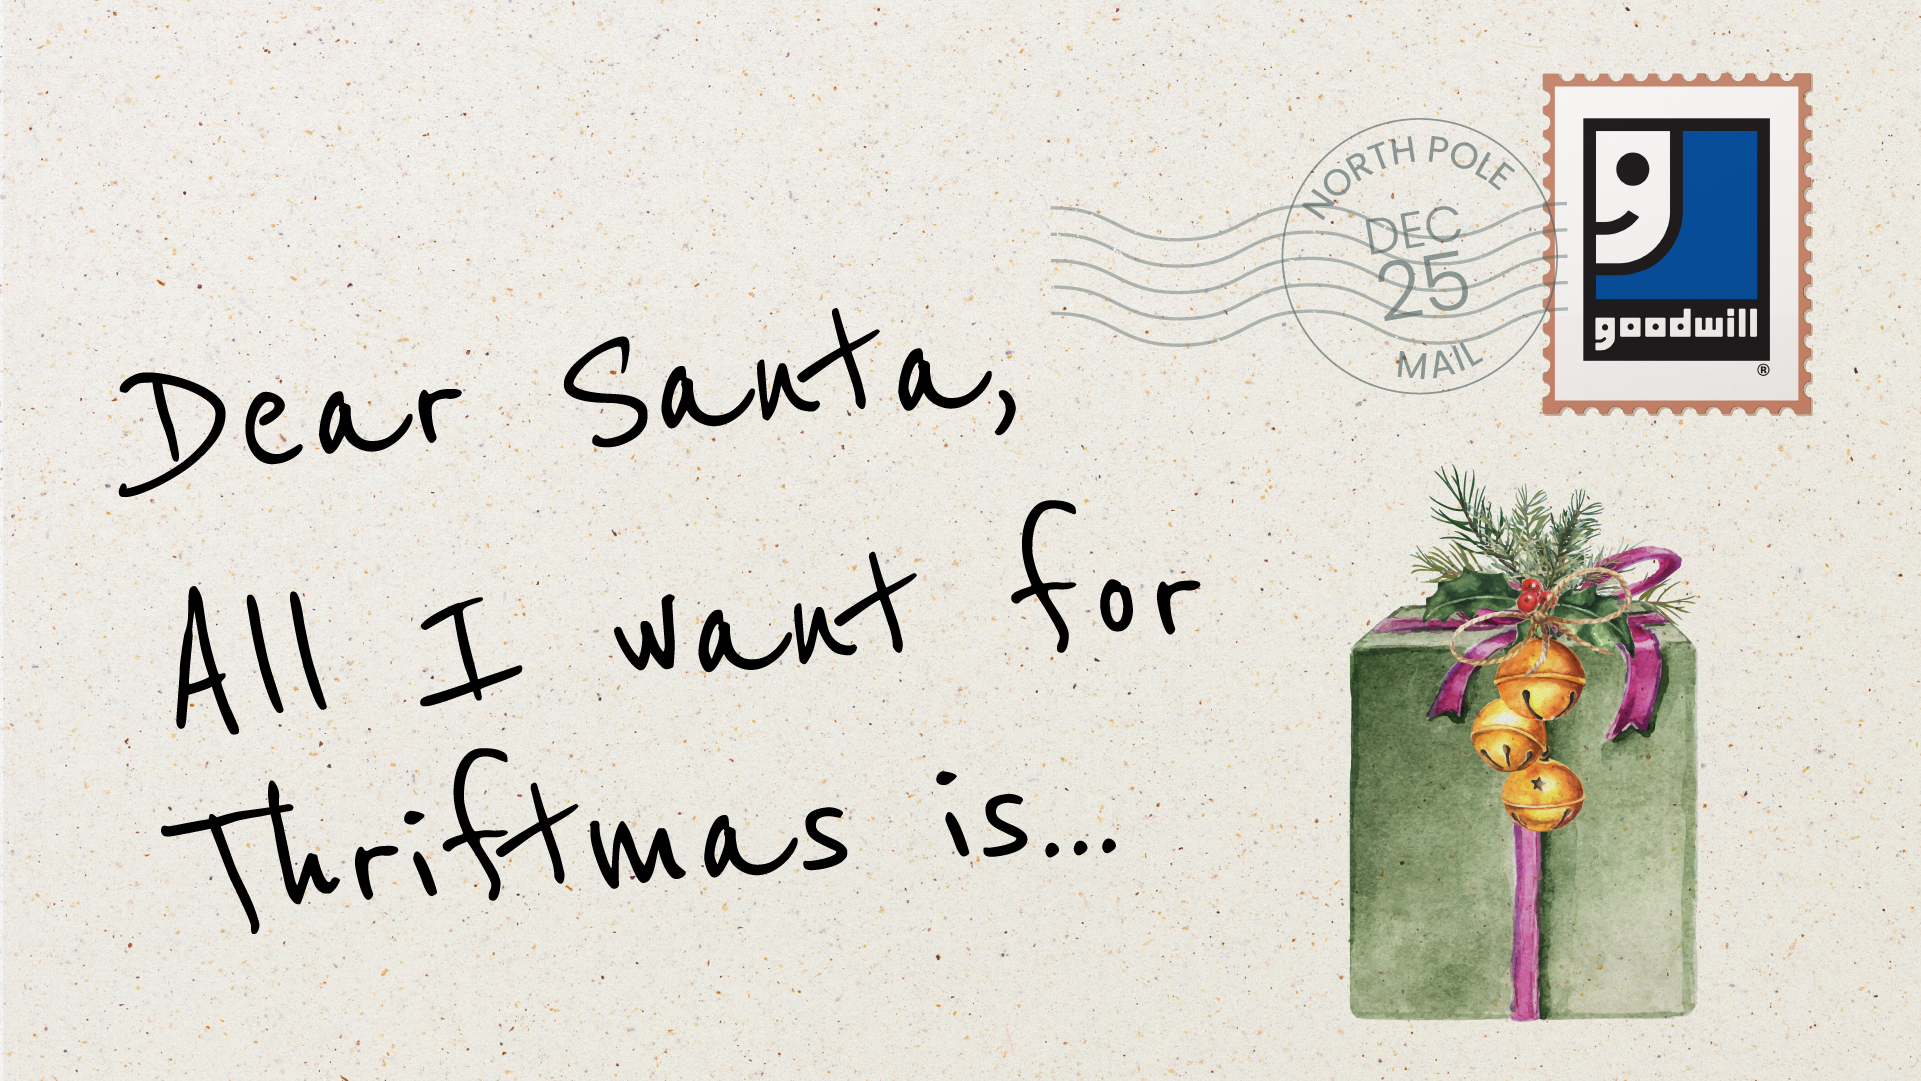 NORTH POLE
DEC
25
MAIL
goodwill
®
Dear Santa,
All I want for
Thriftmas is...